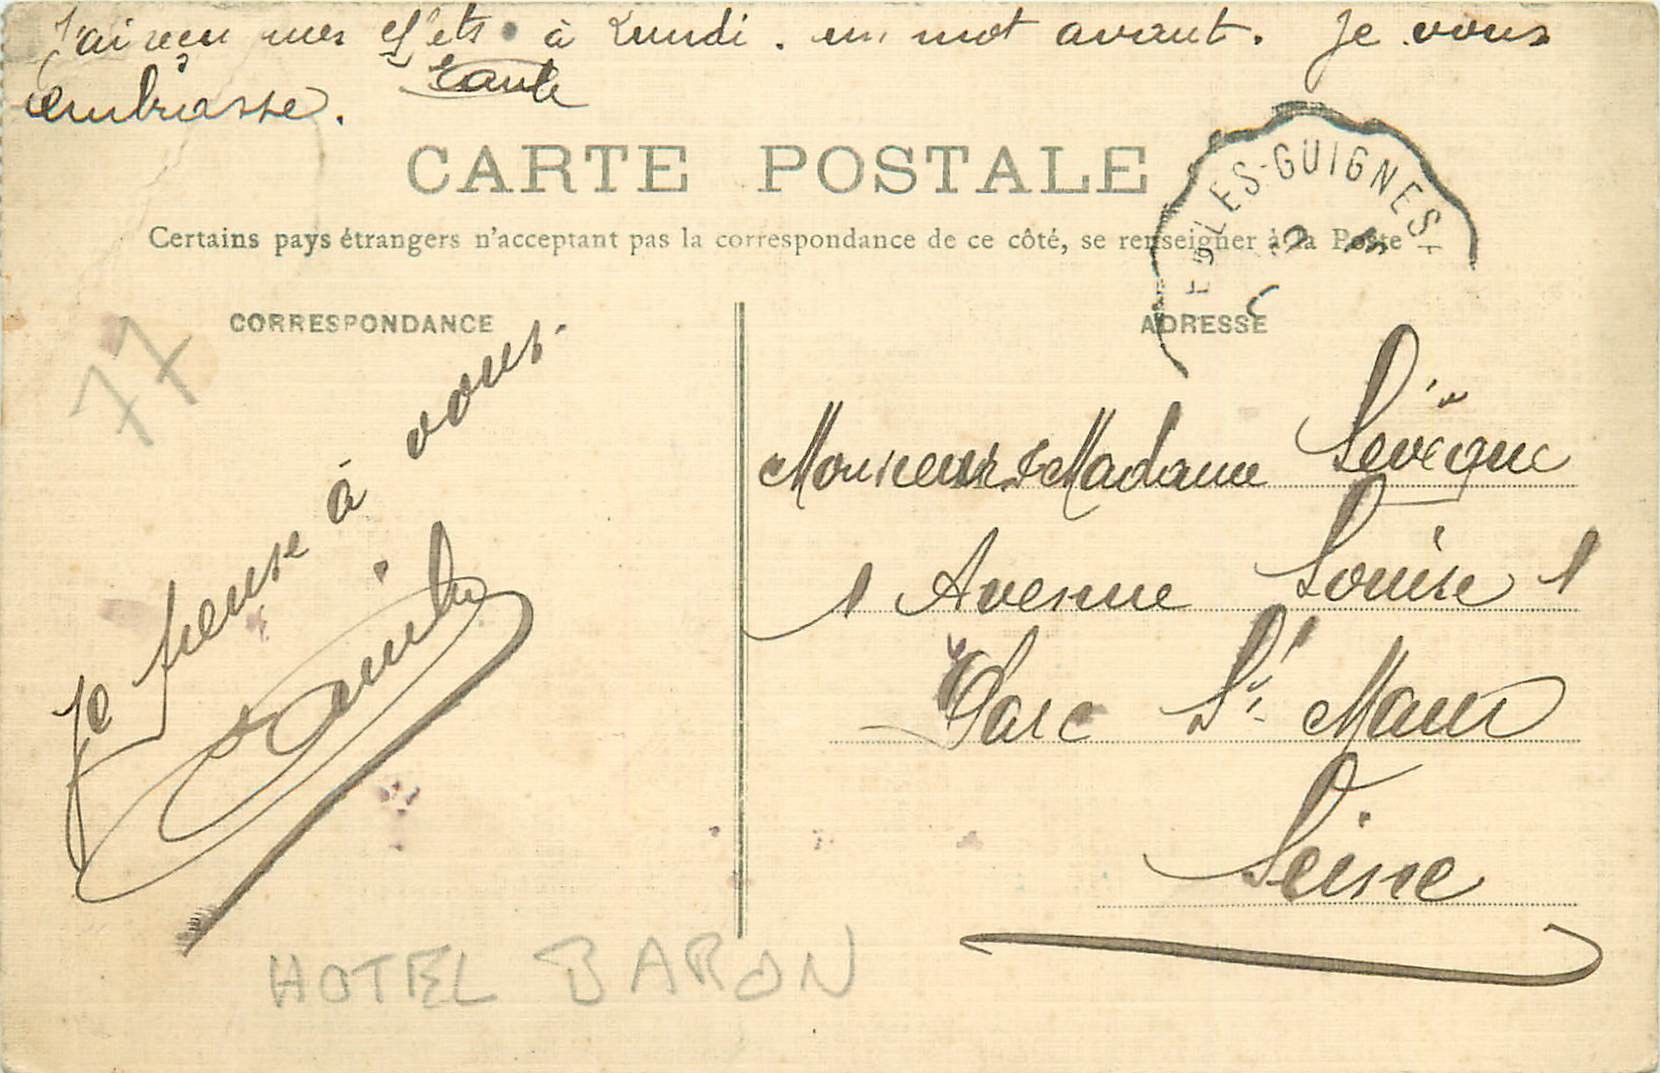 J'ai reçu mes effets. à Lundi. un mot avant. Je vous
embrasse.
CARTE POSTALE
Certains pays étrangers n'acceptant pas la correspondance de ce côté, se renseigner à la Poste
LES-GUIGNES
CORRESPONDANCE
ADRESSE
77
Je pense à vous.
Monsieur & Madame Sévêque
1 Avenue Louise 1
Parc St Maur
Seine
HOTEL BARON